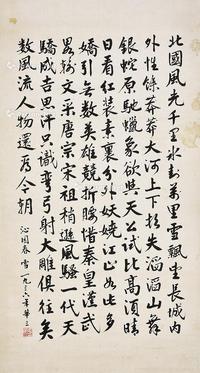 北國風光千里冰封萬里雪飄望長城內
外惟餘莽莽大河上下頓失滔滔山舞
銀蛇原馳蠟象欲與天公試比高須晴
日看紅裝素裹分外妖嬈江山如此多
嬌引無數英雄競折腰惜秦皇漢武
略輸文采唐宗宋祖稍遜風騷一代天
驕成吉思汗只識彎弓射大雕俱往矣
數風流人物還看今朝
沁園春 雪 一九三六年